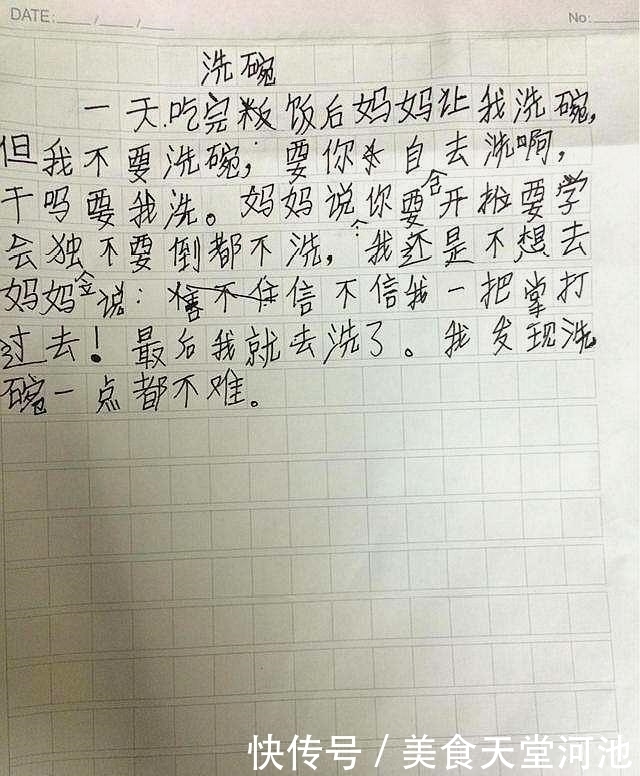 DATE: No:
洗碗
一天吃完饭后妈妈让我洗碗,
但我不要洗碗,要你自去洗啊,
干吗要我洗。妈妈说你要开 要学
会独不要倒都不洗,我还是不想去
妈妈说:信不信我一把掌打
过去!最后我就去洗了。我发现洗
碗一点都不难。
快传号/美食天堂河池